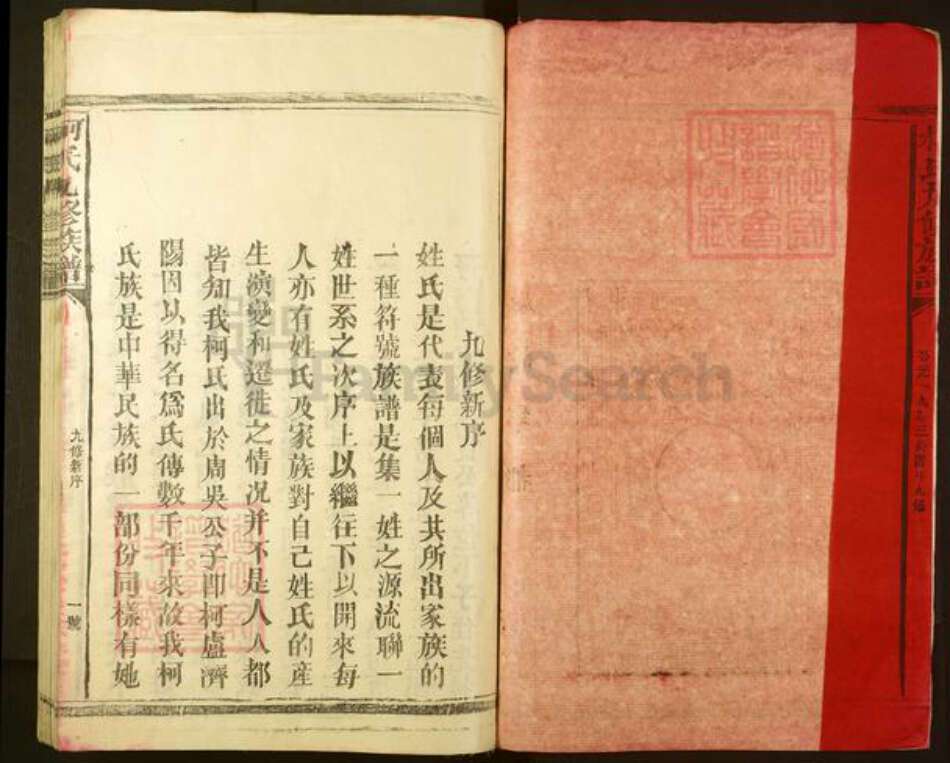 九修新序
姓氏是代表每個人及其所出家族的
一種符號族譜是集一姓之源流聯一
姓世系之次序上以繼往下以開來每
人亦有姓氏及家族對自己姓氏的產
生演變和遷徙之情況并不是人人都
皆知我柯氏出於周吳公子即柯盧濟
陽因以得名爲氏傳數千年來故我柯
氏族是中華民族的一部份同樣有她
柯氏九修族譜
九修新序
一號
FamilySearch